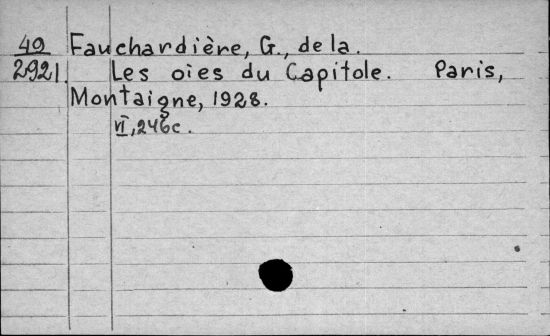 49 Fauchardière, G., de la.
2921. Les oies du Capitole. Paris,
Montaigne, 1928.
VI, 246c.